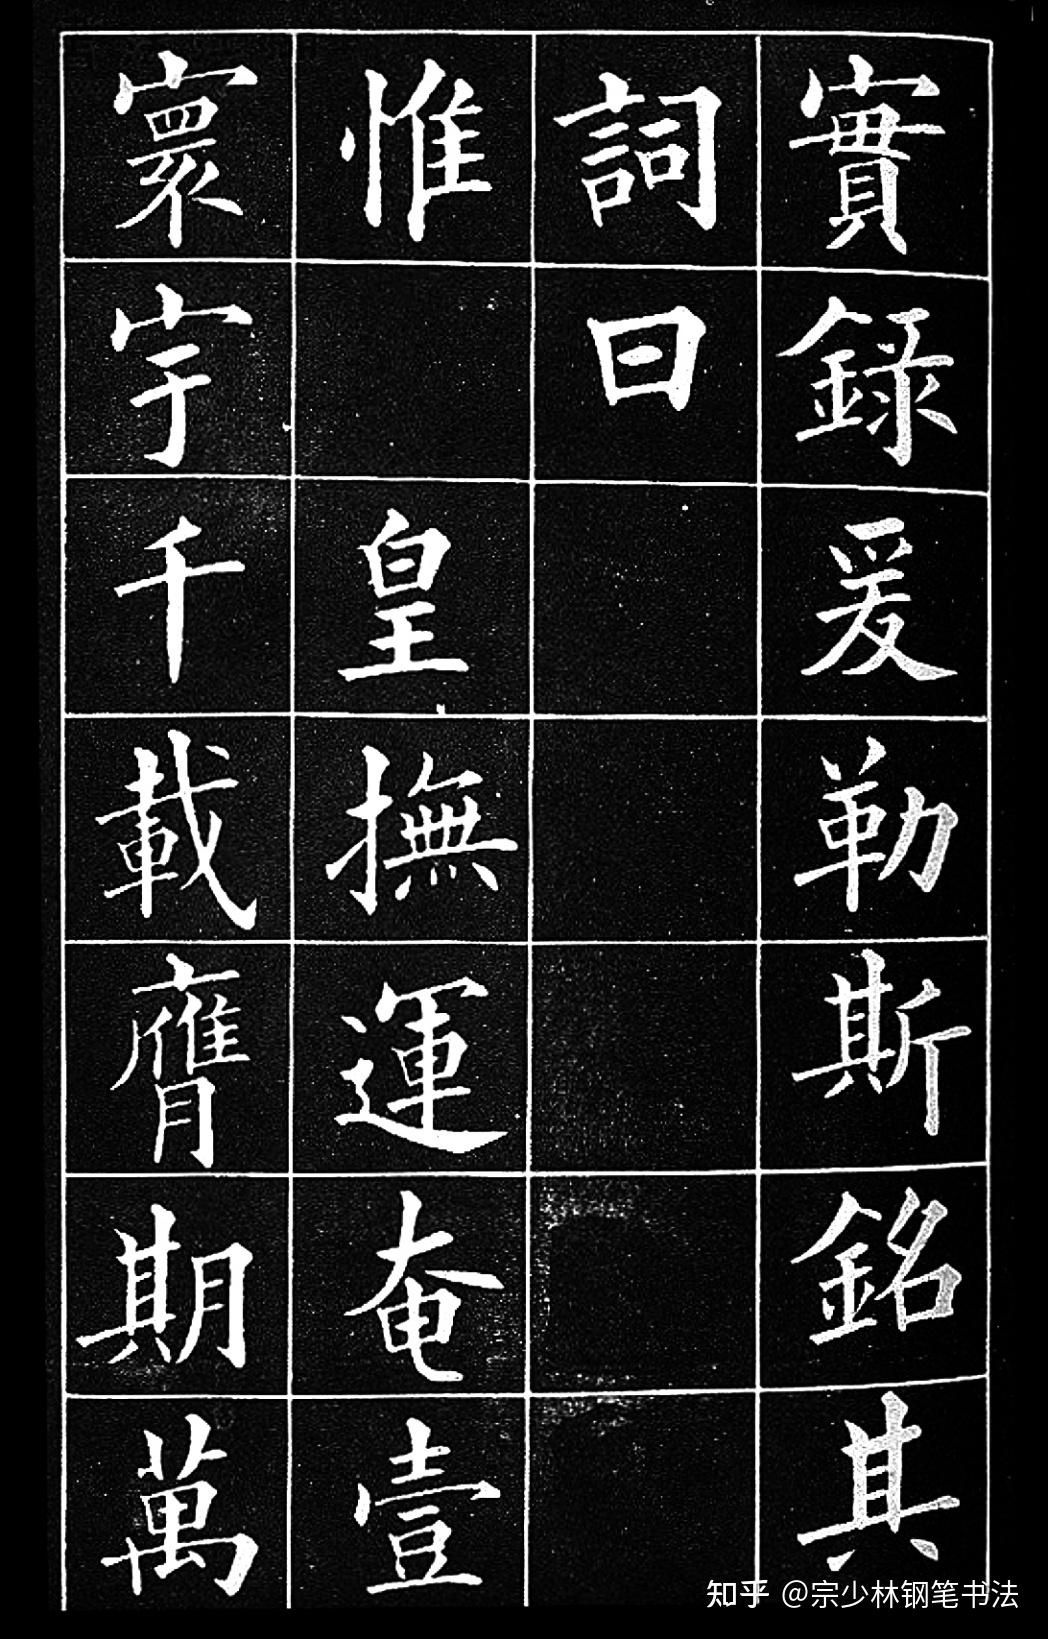 實錄爰勒斯銘其
詞曰
惟皇撫運奄壹
寰宇千載膺期萬
知乎 @宗少林钢笔书法